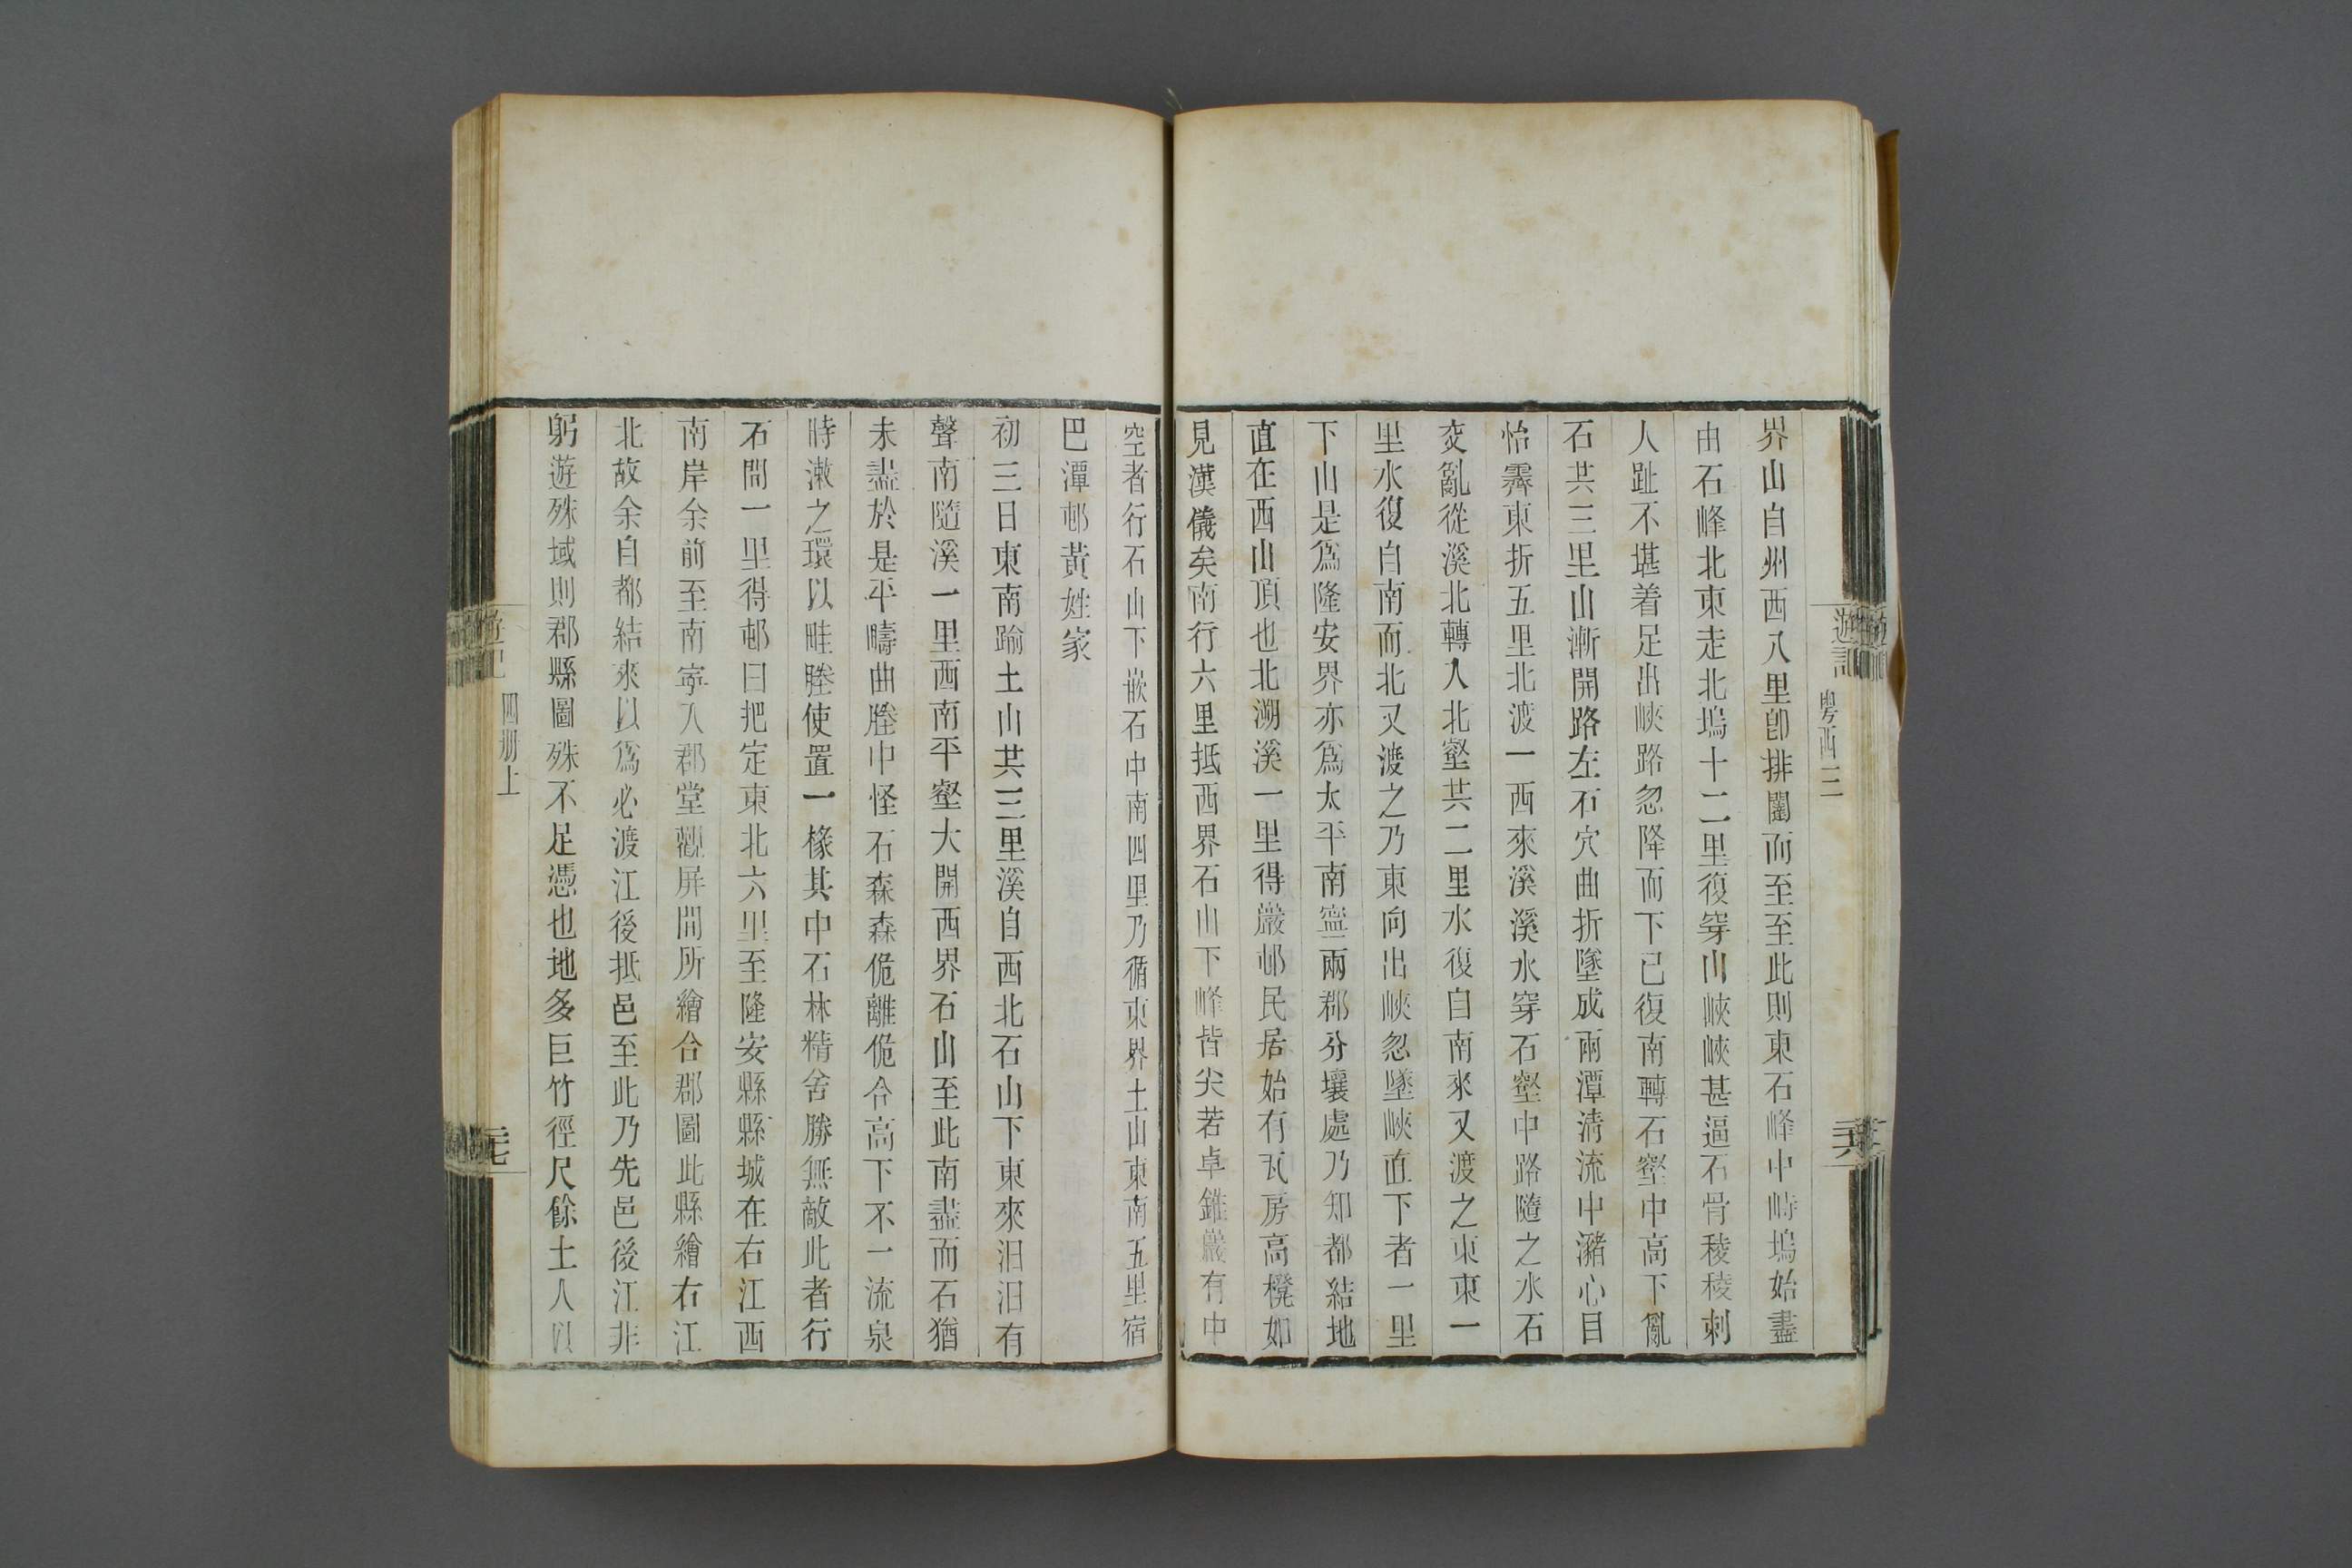 遊記
粵西三
界山自州西八里卽排闥而至至此則東石峰中峙塢始盡
由石峰北東走北塢十二里復穿山峽峽甚逼石骨稜稜刺
人趾不堪着足出峽路忽降而下已復南轉石壑中高下亂
石共三里山漸開路左石穴曲折墜成兩潭清流中瀦心目
怡霽東折五里北渡一西來溪溪水穿石壑中路隨之水石
交亂從溪北轉入北壑共二里水復自南來又渡之東東一
里水復自南而北又渡之乃東向出峽忽墜峽直下者一里
下山是爲隆安界亦爲太平南寧兩郡分壤處乃知都結地
直在西山頂也北溯溪一里得巖邨民居始有瓦房高櫈如
見漢儀矣南行六里抵西界石山下峰皆尖若卓錐巖有中
空者行石山下嵌石中南四里乃循東界土山東南五里宿
巴潭邨黃姓家
初三日東南踰土山共三里溪自西北石山下東來汨汨有
聲南隨溪一里西南平壑大開西界石山至此南盡而石猶
未盡於是平疇曲塍中怪石森森佹離佹合高下不一流泉
時漱之環以畦塍使置一椽其中石林精舍勝無敵此者行
石間一里得邨曰把定東北六里至隆安縣縣城在右江西
南岸余前至南寧入郡堂觀屏間所繪合郡圖此縣繪右江
北故余自都結來以爲必渡江後抵邑至此乃先邑後江非
躬遊殊域則郡縣圖殊不足憑也地多巨竹徑尺餘土人以
遊記
四册上